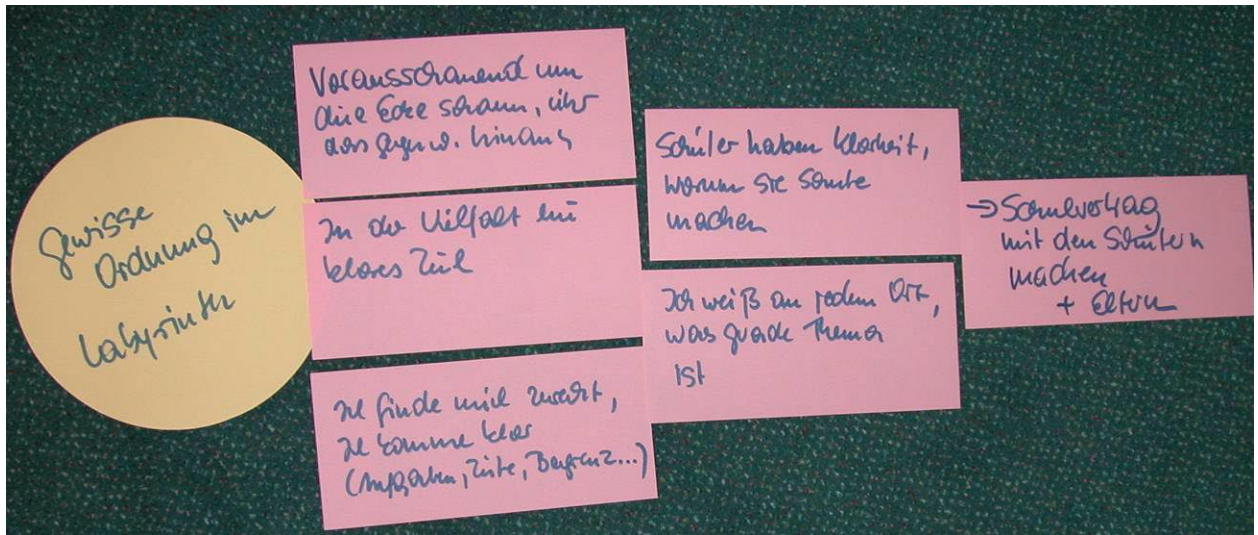 Gewisse
Ordnung im
Labyrinth
Vorausschauend um
die Ecke schaun, über
das gegenw. hinaus
In der Vielfalt ein
klares Ziel
Ich finde mich zurecht,
Ich komme klar
(Aufgaben, Ziele, Begrenz...)
Schüler haben Klarheit,
warum sie Schule
machen
Ich weiß an jedem Ort,
was grade Thema
ist
→ Schulvertrag
mit den Schülern
machen
+ Eltern